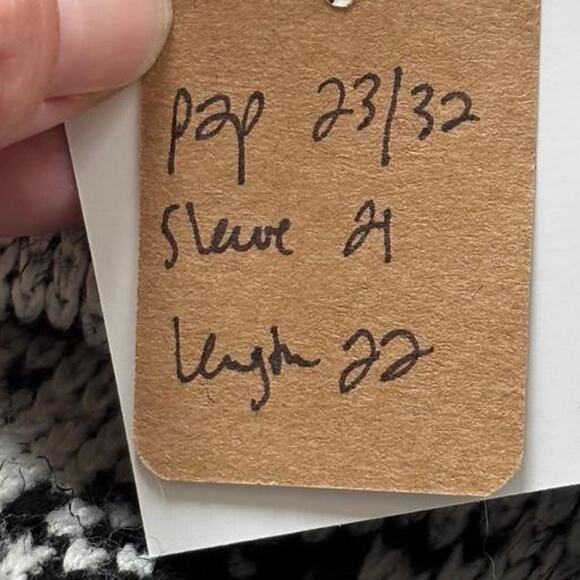 p2p 23/32
Sleeve 21
length 22